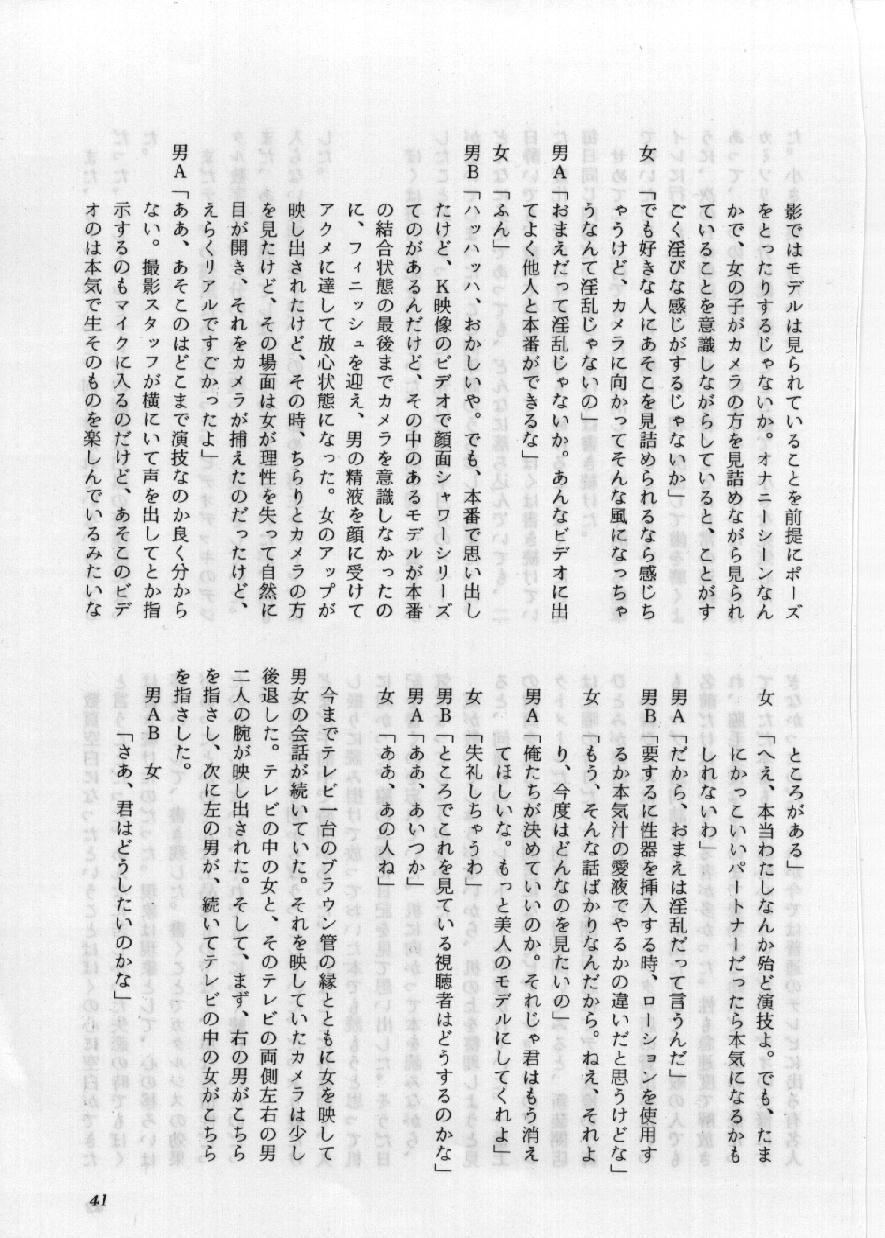 影ではモデルは見られていることを前提にポーズ
をとったりするじゃないか。オナニーシーンなん
かで、女の子がカメラの方を見詰めながら見られ
ていることを意識しながらしていると、ことがす
ごく淫びな感じがするじゃないか」
女「でも好きな人にあそこを見詰められるなら感じち
ゃうけど、カメラに向かってそんな風になっちゃ
うなんて淫乱じゃないの」
男A「おまえだって淫乱じゃないか。あんなビデオに出
てよく他人と本番ができるな」
女「ふん」
男B「ハッハッハ、おかしいや。でも、本番で思い出し
たけど、K映像のビデオで顔面シャワーシリーズ
てのがあるんだけど、その中のあるモデルが本番
の結合状態の最後までカメラを意識しなかったの
に、フィニッシュを迎え、男の精液を顔に受けて
アクメに達して放心状態になった。女のアップが
映し出されたけど、その時、ちらりとカメラの方
を見たけど、その場面は女が理性を失って自然に
目が開き、それをカメラが捕えたのだったけど、
えらくリアルですごかったよ」
男A「ああ、あそこのはどこまで演技なのか良く分から
ない。撮影スタッフが横にいて声を出してとか指
示するのもマイクに入るのだけど、あそこのビデ
オのは本気で生そのものを楽しんでいるみたいな
ところがある」
女「へえ、本当わたしなんか殆ど演技よ。でも、たま
にかっこいいパートナーだったら本気になるかも
しれないわ」
男A「だから、おまえは淫乱だって言うんだ」
男B「要するに性器を挿入する時、ローションを使用す
るか本気汁の愛液でやるかの違いだと思うけどな」
女「もう、そんな話ばかりなんだから。ねえ、それよ
り、今度はどんなのを見たいの」
男A「俺たちが決めていいのか。それじゃ君はもう消え
てほしいな。もっと美人のモデルにしてくれよ」
女「失礼しちゃうわ」
男B「ところでこれを見ている視聴者はどうするのかな」
男A「ああ、あいつか」
女「ああ、あの人ね」
今までテレビ一台のブラウン管の縁とともに女を映して
男女の会話が続いていた。それを映していたカメラは少し
後退した。テレビの中の女と、そのテレビの両側左右の男
二人の腕が映し出された。そして、まず、右の男がこちら
を指さし、次に左の男が、続いてテレビの中の女がこちら
を指さした。
男AB 女
「さあ、君はどうしたいのかな」
41